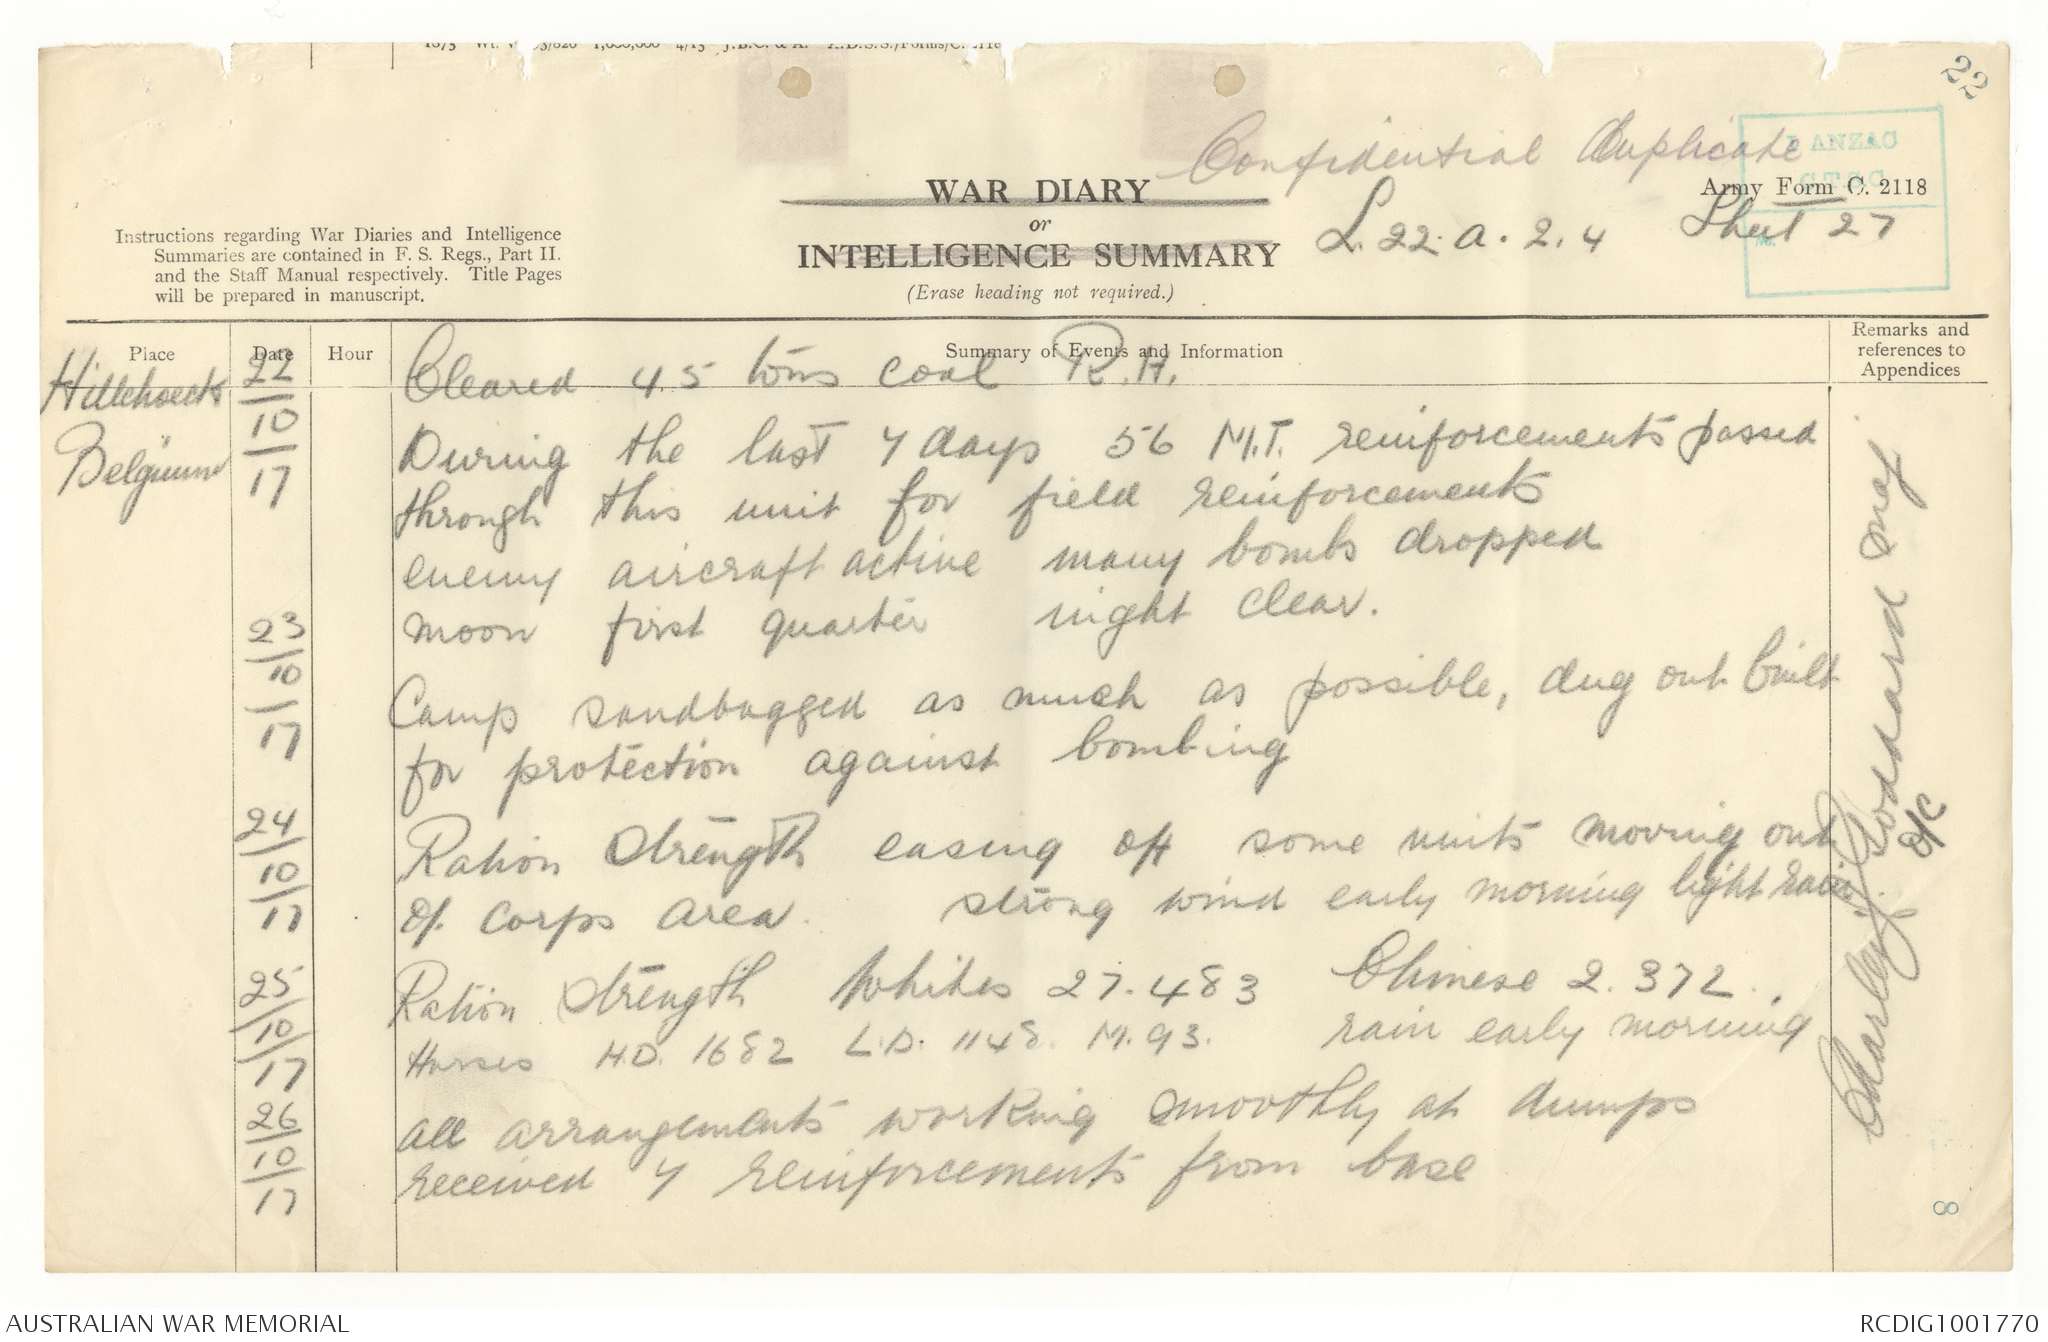 22
Confidential Duplicate
I ANZAC
WAR DIARY
or
INTELLIGENCE SUMMARY
(Erase heading not required.)
Army Form C. 2118
L. 22. a. 2. 4 Sheet 27
Instructions regarding War Diaries and Intelligence
Summaries are contained in F. S. Regs., Part II.
and the Staff Manual respectively. Title Pages
will be prepared in manuscript.
Place Date Hour Summary of Events and Information Remarks and
references to
Appendices
Hillehoeck
Belgium
22
10
17
Cleared 45 tons coal R.H.
During the last 7 days 56 M.T. reinforcements passed
through this unit for field reinforcements
enemy aircraft active many bombs dropped
moon first quarter night clear.
23
10
17
Camp sandbagged as much as possible, dug out built
for protection against bombing
24
10
17
Ration Strength easing off some units moving out
of corps area. strong wind early morning light rain.
25
10
17
Ration Strength Whites 27.483 Chinese 2.372.
Horses H.D. 1682 L.D. 1148. M. 93. rain early morning
26
10
17
all arrangements working smoothly at dumps
received 7 reinforcements from base
Goddard Maj
O/C
8
AUSTRALIAN WAR MEMORIAL RCDIG1001770